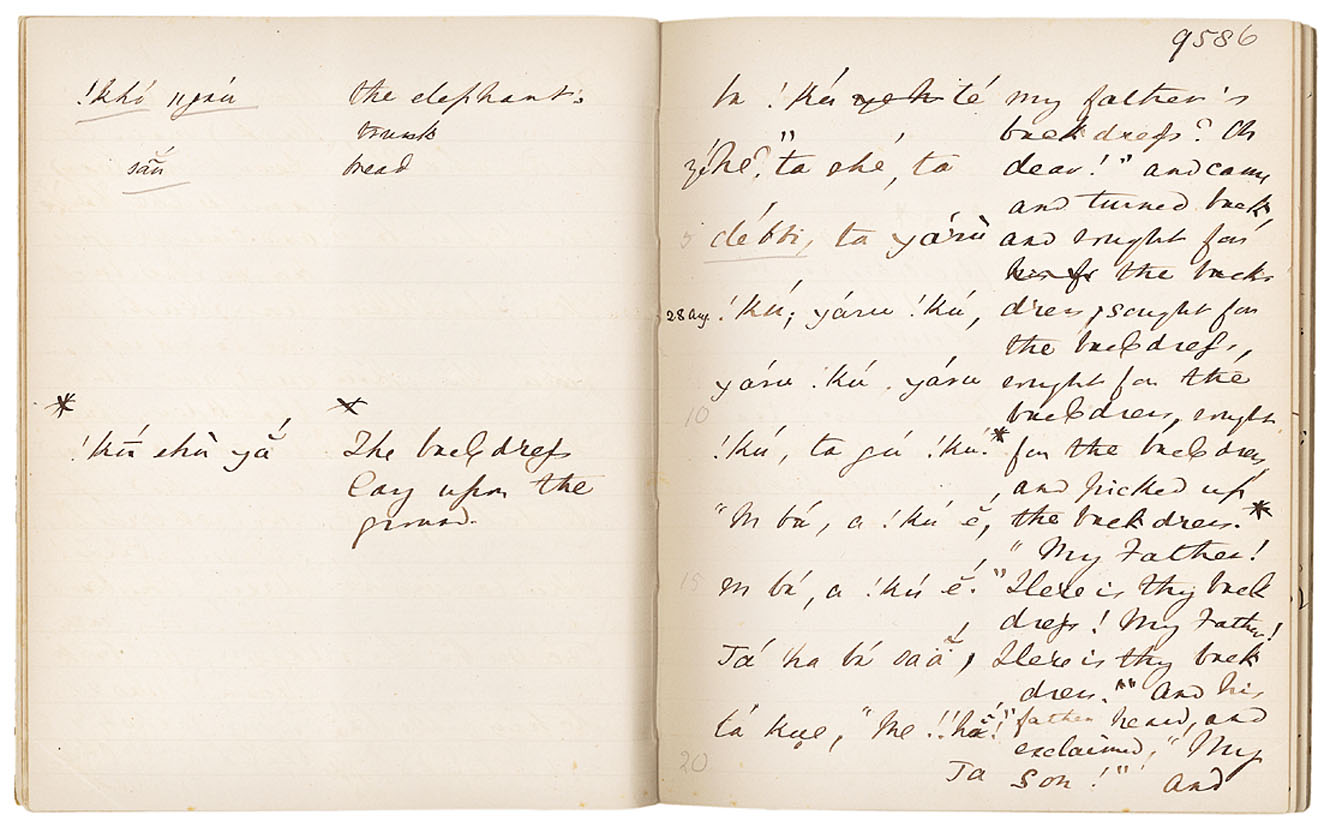 !khó
the elephant's
trunk
sắñ
bread
*
*
!kú ehù yắ
The back dress
lay upon the
ground.
9586
ta !kú té
my father's
back dress? Oh
hé?" ta ehé, ta
dear!" and came
and turned back,
5
débbi, ta yárù
and sought for
the back
28 Aug.
!kú; yáru !kú,
dress, sought for
the back dress,
yáru !kú, yáru
sought for the
10
back dress, sought
!kú, ta gú !kú.*
for the back dress,
and picked up
"M bá, a !kú ĕ,
the back dress.*
" My Father!
15
M bá, a !kú ĕ."
Here is thy back
dress! My Father!
Tá ha bá saắ,
Here is thy back
dress."" And his
father heard, and
exclaimed, "My
20
Ta
Son!" And